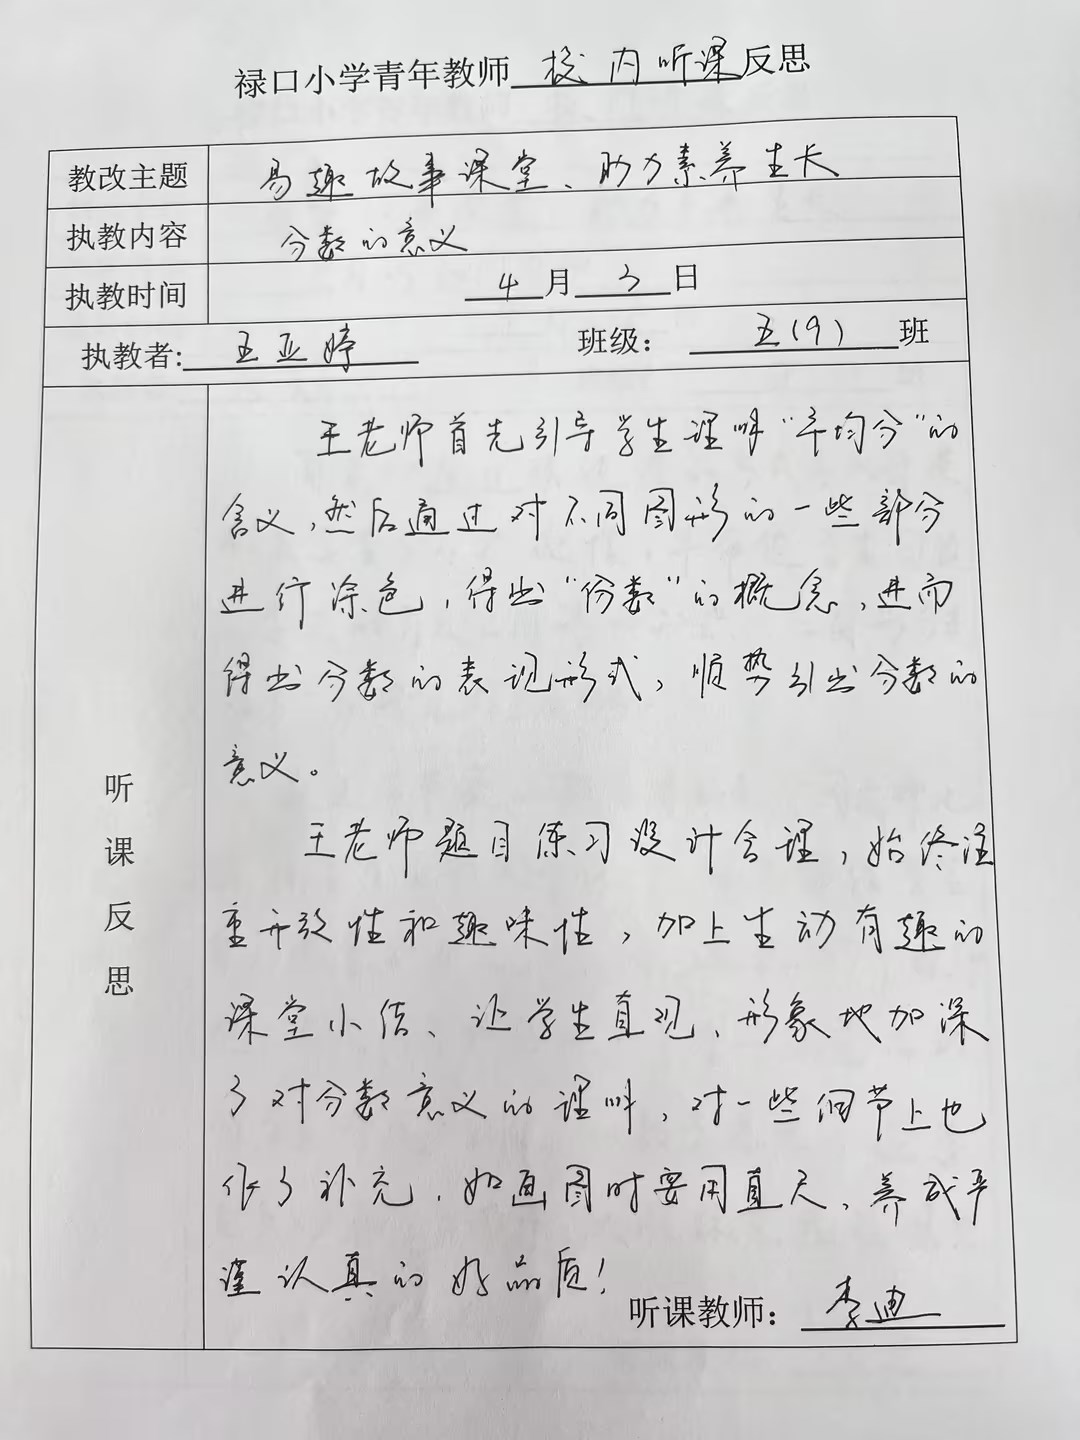 禄口小学青年教师校内听课反思
教改主题 易趣故事课堂、助力素养生长
执教内容 分数的意义
执教时间 4月3日
执教者:王亚婷 班级：五(9)班
听课反思
王老师首先引导学生理解“平均分”的
含义，然后通过对不同图形的一些部分
进行涂色，得出“份数”的概念，进而
得出分数的表现形式，顺势引出分数的
意义。
王老师题目练习设计合理，始终注
重开放性和趣味性，加上生动有趣的
课堂小结、让学生直观、形象地加深
了对分数意义的理解，对一些细节上也
做了补充，如画图时要用直尺，养成严
谨认真的好品质！
听课教师：李迪